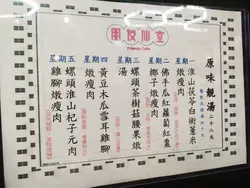 朋友小室
Friends Cafe
原味靚湯 二十八元
星期一 淮山茯苓白術薏米燉瘦肉
星期二 佛手瓜紅蘿蔔紅棗椰子燉瘦肉
星期三 螺頭茶樹菇腰果燉湯
星期四 黃豆木瓜雪耳雞腳燉瘦肉
星期五 螺頭淮山杞子元肉雞腳燉瘦肉